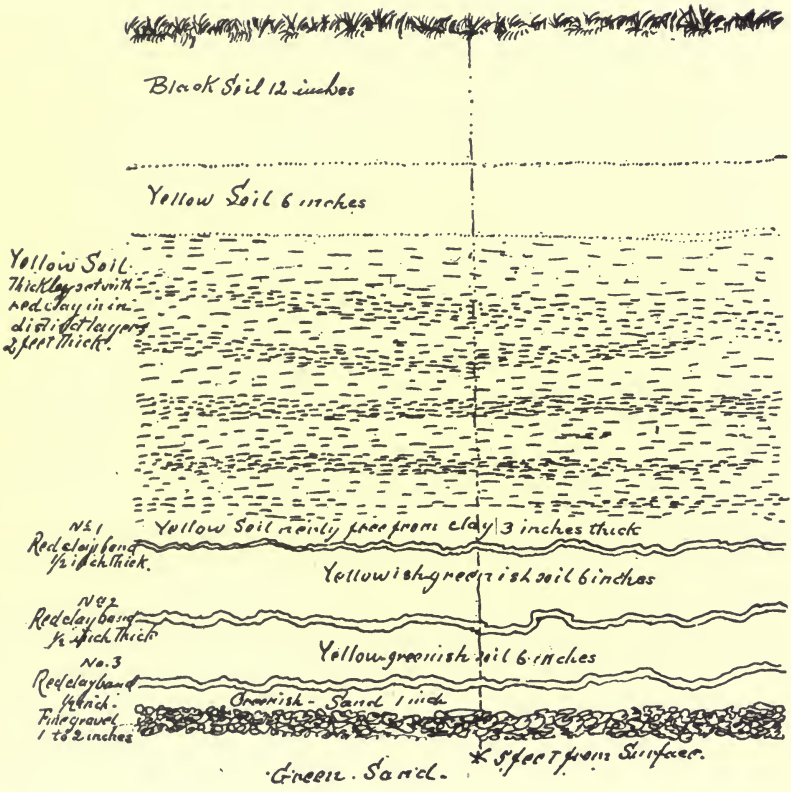 Black Soil 12 inches
Yellow Soil 6 inches
Yellow Soil
thickly set with
red clay in in
distinct layers
2 feet thick.
Yellow Soil nearly free from clay 3 inches thick
No 1
Red clay band
1/2 inch thick.
Yellowish greenish soil 6 inches
No 2
Red clay band
1/2 inch thick
Yellow-greenish soil 6 inches
No. 3
Red clay band
1/2 inch.
Greenish - Sand 1 inch
Fine gravel
1 to 2 inches
* 5 feet from Surface.
Green. Sand.